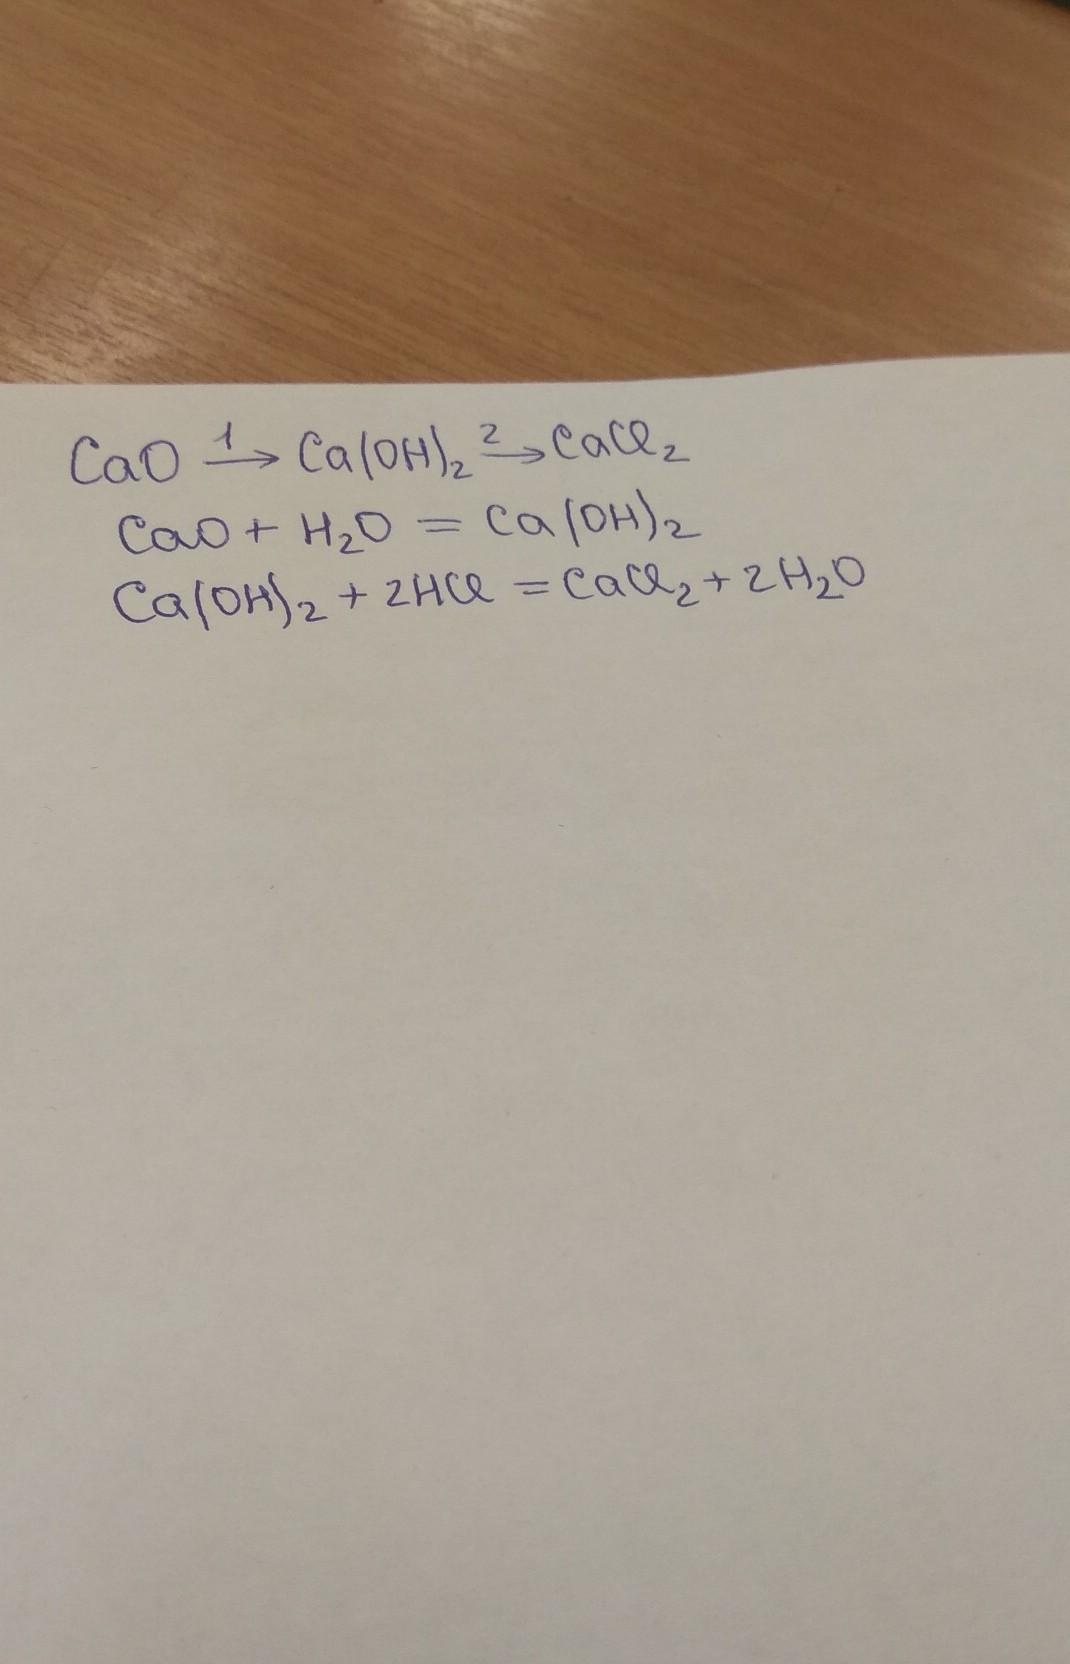 CaO 1→ Ca(OH)₂ 2→ CaCl₂
CaO + H₂O = Ca(OH)₂
Ca(OH)₂ + 2HCl = CaCl₂ + 2H₂O